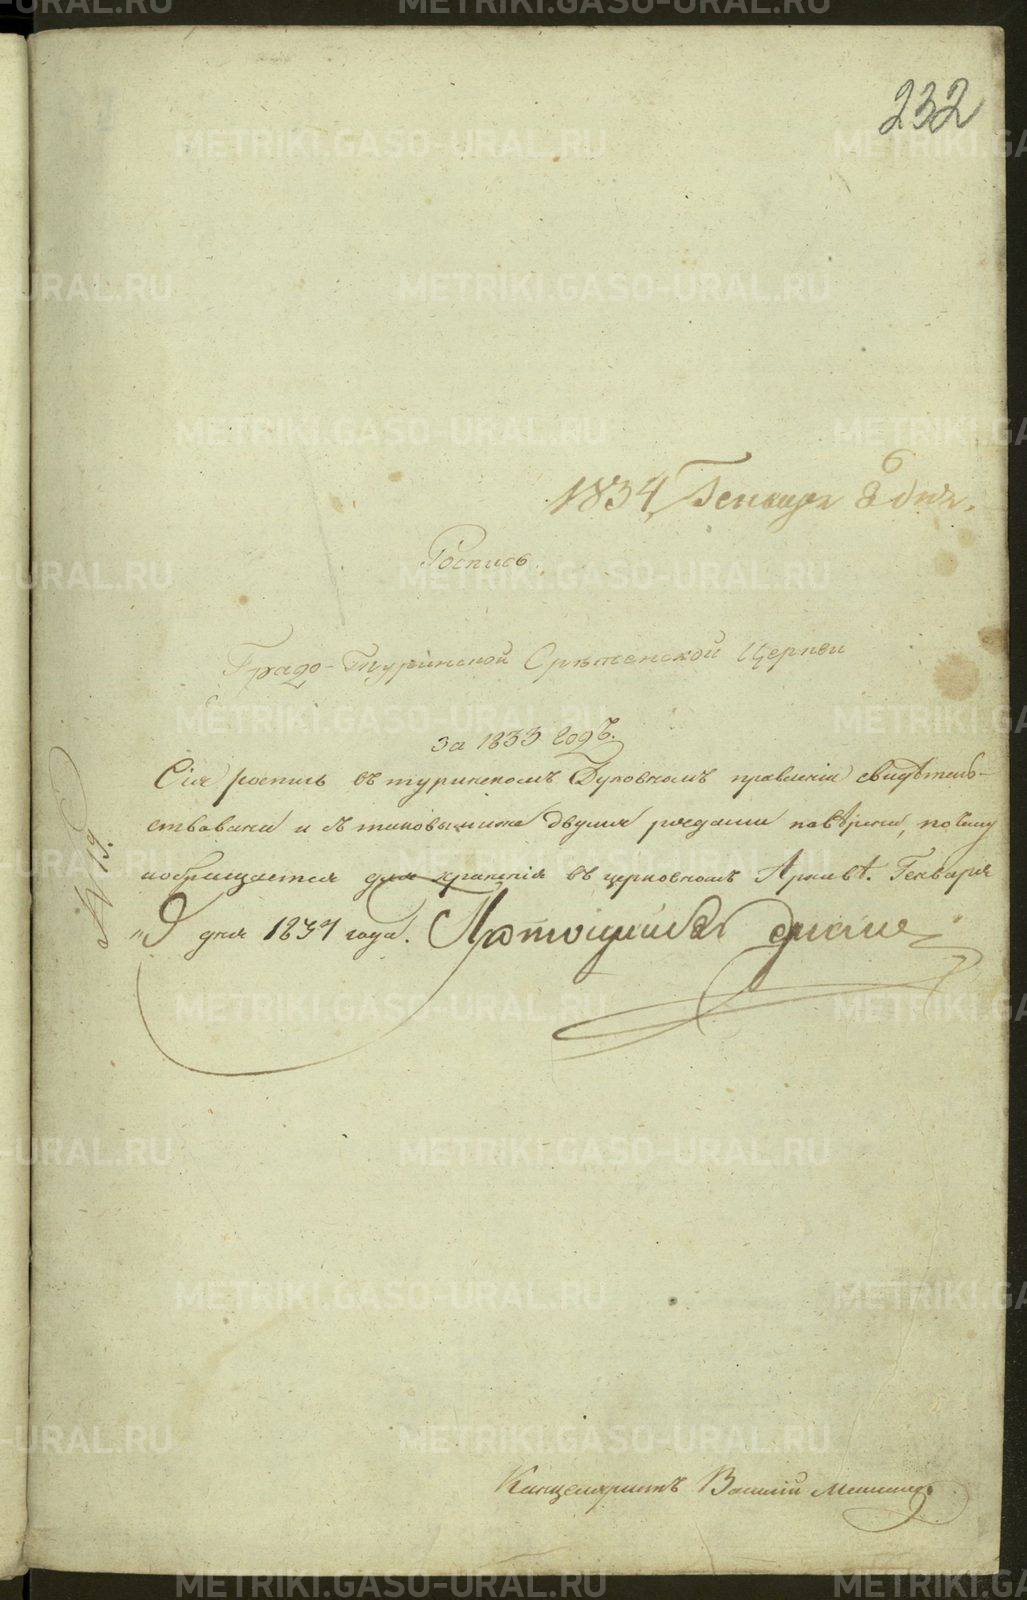 232
1834 Генваря 8 дня.
6
Роспись
Градо-Туринской Срѣтенской Церкви
за 1833 годъ.
Сія роспись въ туринскомъ Духовномъ правленіи свидѣтель-
ствована и съ таковыми же двумя рядами повѣрена, почему
и обращается для храненія въ церковномъ Архивѣ. Генваря
"9 дня 1834 года.
№ 19.
Канцеляристъ Василій
METRIKI.GASO-URAL.RU